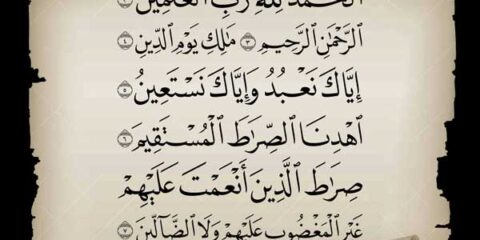 ٱلْحَمْدُ لِلَّهِ رَبِّ ٱلْعَٰلَمِينَ ٢
ٱلرَّحْمَٰنِ ٱلرَّحِيمِ ٣ مَٰلِكِ يَوْمِ ٱلدِّينِ ٤
إِيَّاكَ نَعْبُدُ وَإِيَّاكَ نَسْتَعِينُ ٥
ٱهْدِنَا ٱلصِّرَٰطَ ٱلْمُسْتَقِيمَ ٦
صِرَٰطَ ٱلَّذِينَ أَنْعَمْتَ عَلَيْهِمْ
غَيْرِ ٱلْمَغْضُوبِ عَلَيْهِمْ وَلَا ٱلضَّآلِّينَ ٧